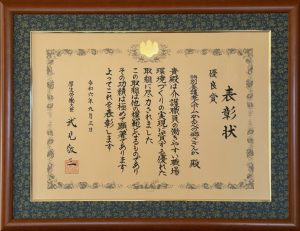 表彰状
優良賞
殿
貴殿は介護職員の働きやすい職場
環境づくりの実現に資する優れた
取組に尽力されました
この取組は他の模範となるものであり
その功績は極めて顕著であります
よってこれを表彰します
令和六年九月三日
厚生労働大臣
武見敬三